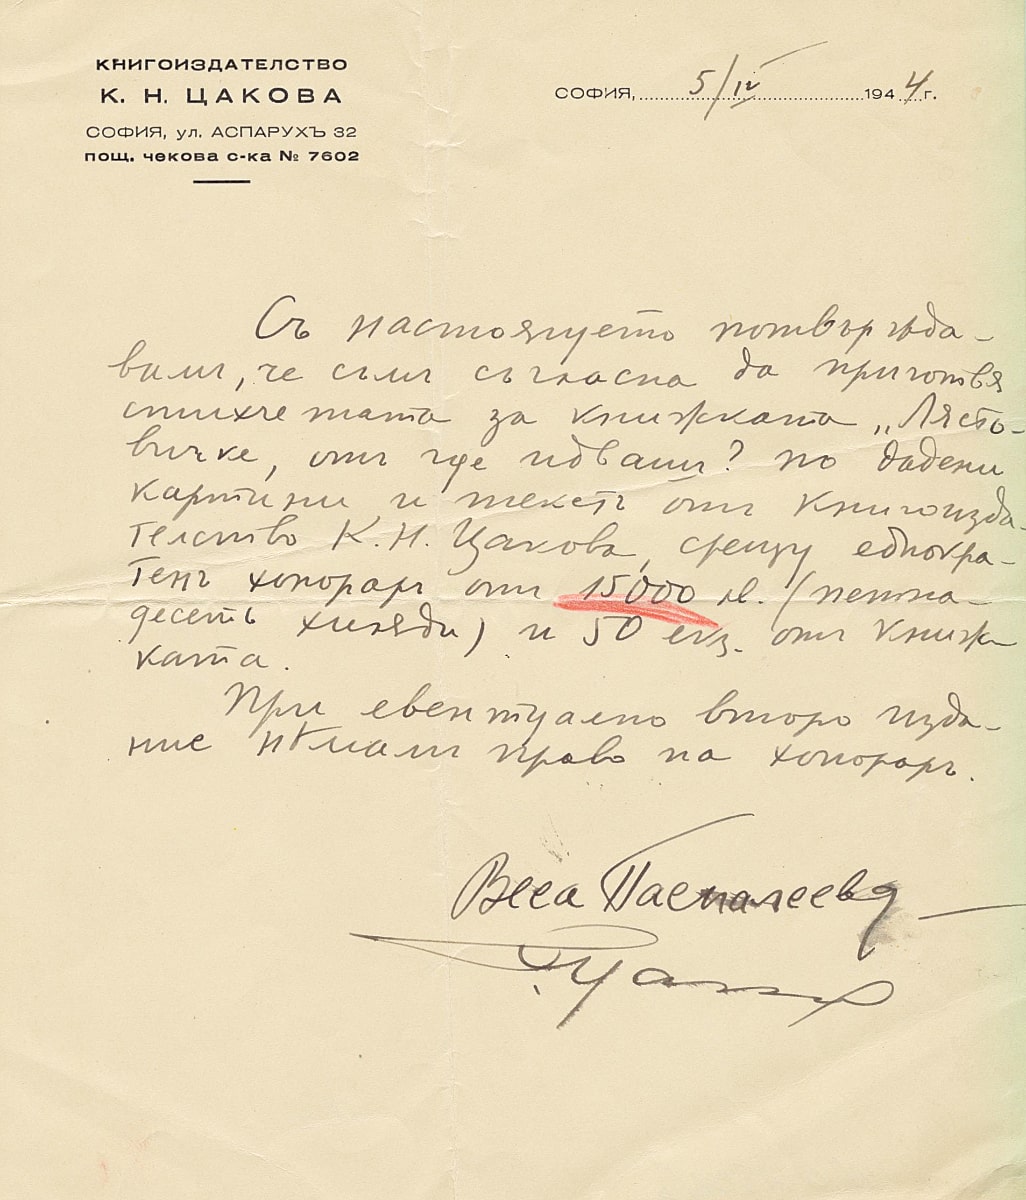 КНИГОИЗДАТЕЛСТВО
К. Н. ЦАКОВА
СОФИЯ, ул. АСПАРУХЪ 32
пощ. чекова с-ка № 7602
СОФИЯ, 5/IV 1944 г.
Съ настоящето потвържда-
вамъ, че съмъ съгласна да приготвя
стихчетата за книжката „Лясто-
вичке, отъ где идвашъ? по дадени
картини и текстъ отъ Книгоизда-
телство К. Н. Цакова, срещу еднокра-
тенъ хонораръ отъ 15000 лв. (петна-
десеть хиляди) и 50 екз. отъ книж-
ката.
При евентуално второ изда-
ние нѣмамъ право на хонораръ.
Веса Паспалеева